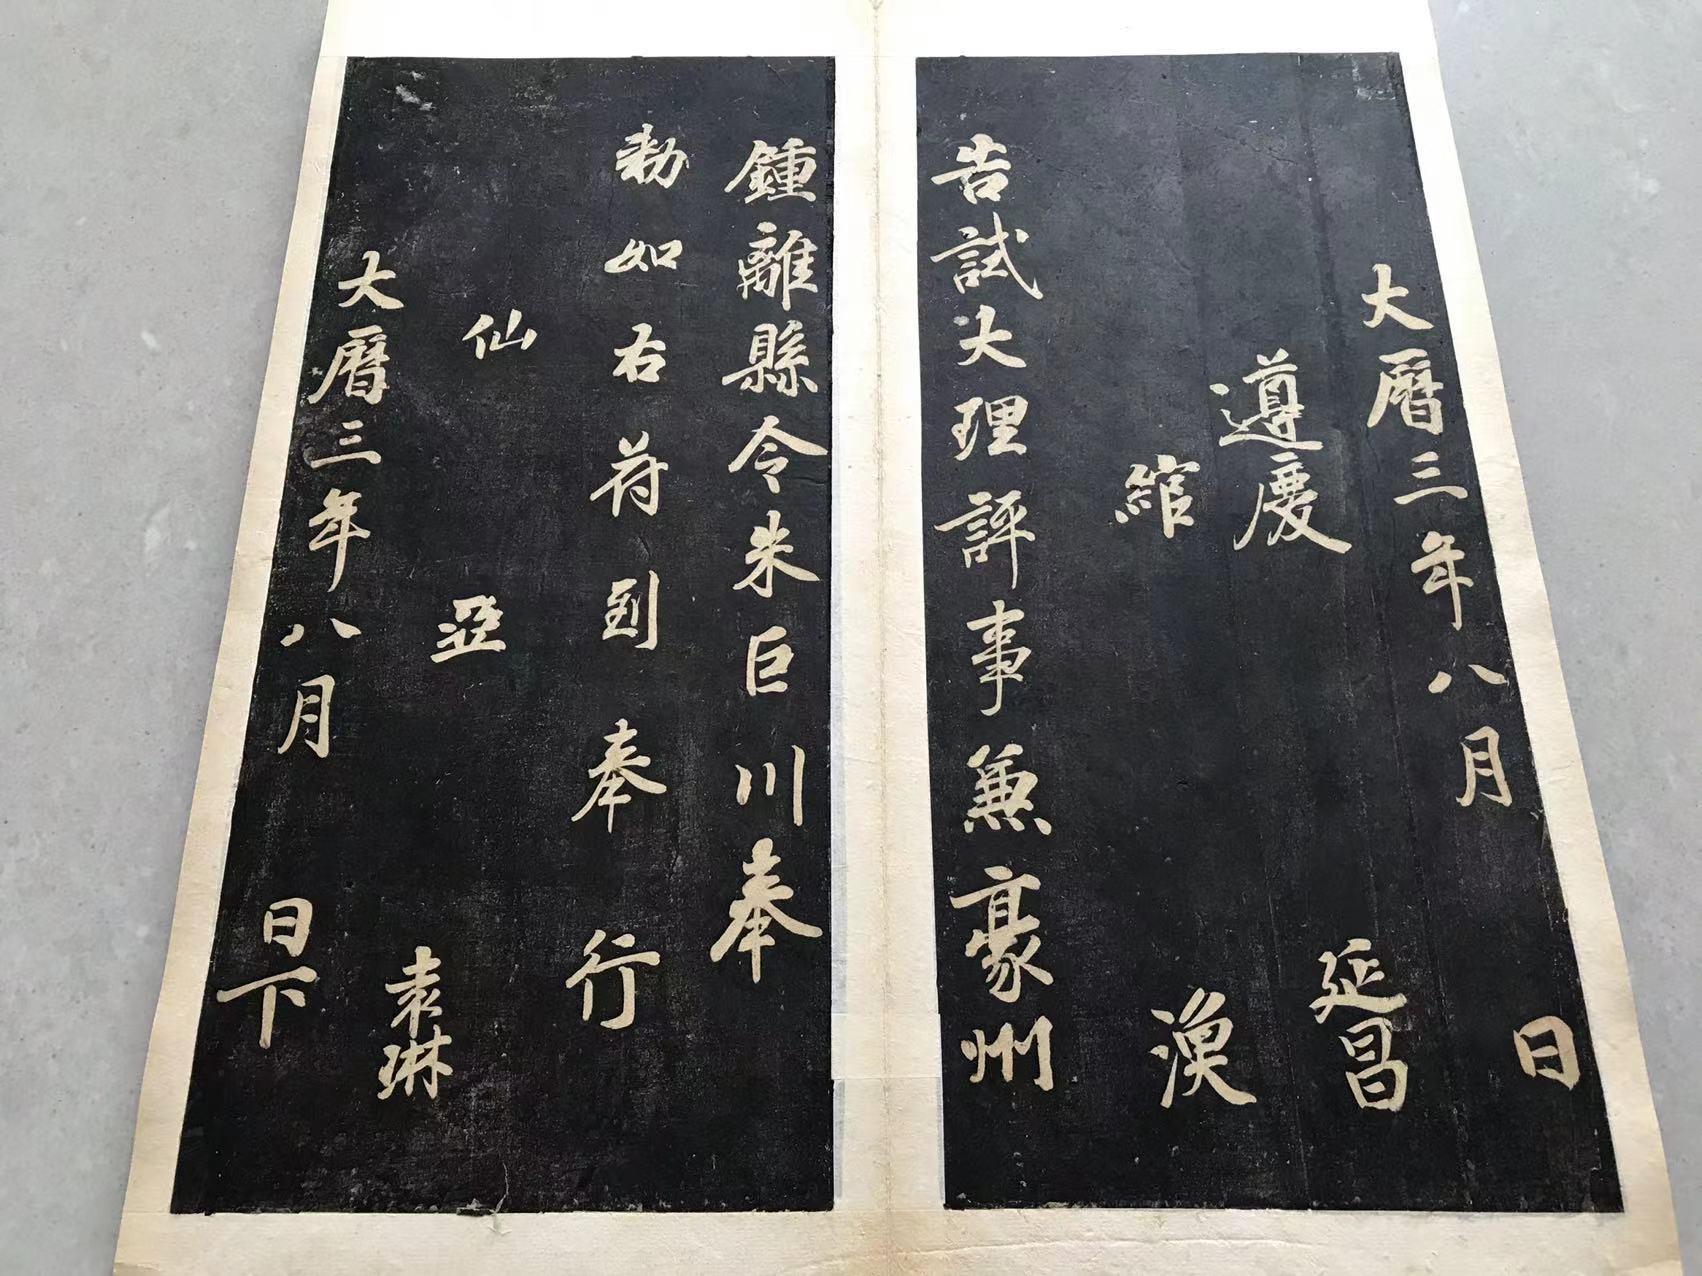 大曆三年八月 日
遵慶 延昌
綰 渙
告試大理評事兼豪州
鍾離縣令朱巨川奉
勑如右苻到奉行
仙 亞 袁琳
大曆三年八月 日下